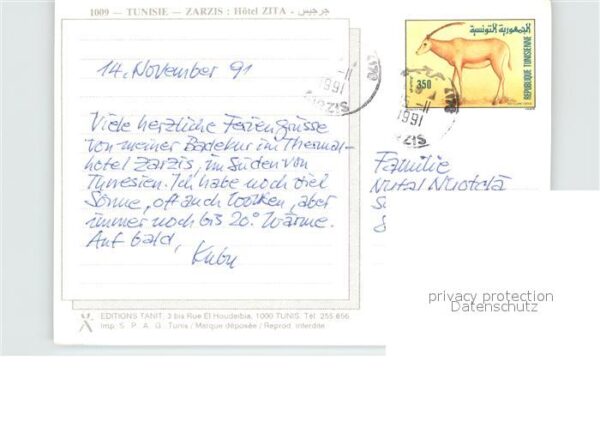 1009 - TUNISIE - ZARZIS : Hôtel ZITA - جرجيس
14. November 91
Viele herzliche Feriengrüsse
von meiner Badekur im Thermal-
hotel Zarzis, im Süden von
Tunesien. Ich habe noch viel
Sonne, oft auch Wolken, aber
immer noch bis 20° Wärme.
Auf bald,
Kubu
EDITIONS TANIT. 3 bis Rue El Houdeibia, 1000 TUNIS. Tél. 255 856
Imp. S. P. A. G. Tunis / Marque déposée / Reprod. interdite
الجمهورية التونسية
REPUBLIQUE TUNISIENNE
350
1991
1991
Familie
privacy protection
Datenschutz